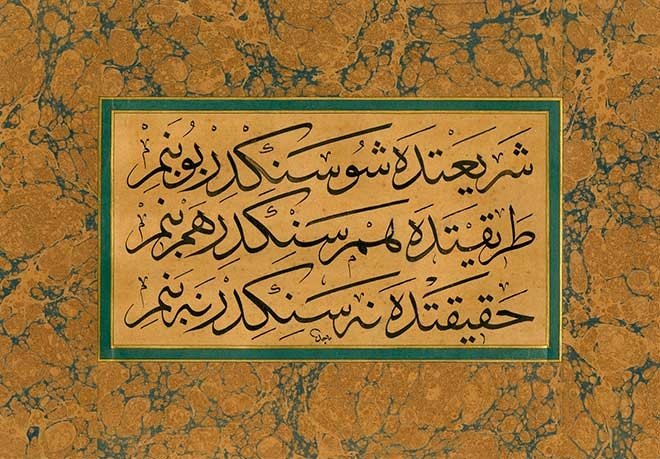 شريعتده شو سنكدر بو بنم
طريقتده هم سنكدر هم بنم
حقيقتده نه سنكدر نه بنم